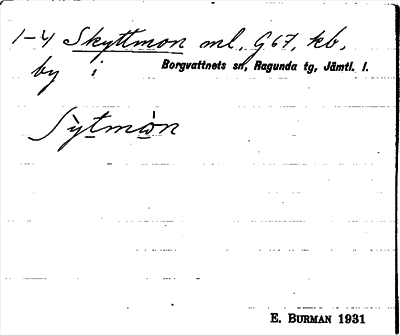 1-4 Skyttmon ml. G67, kb,
by i Borgvattnets sn, Ragunda tg, Jämtl. l.
Sỳtmòn
E. BURMAN 1931